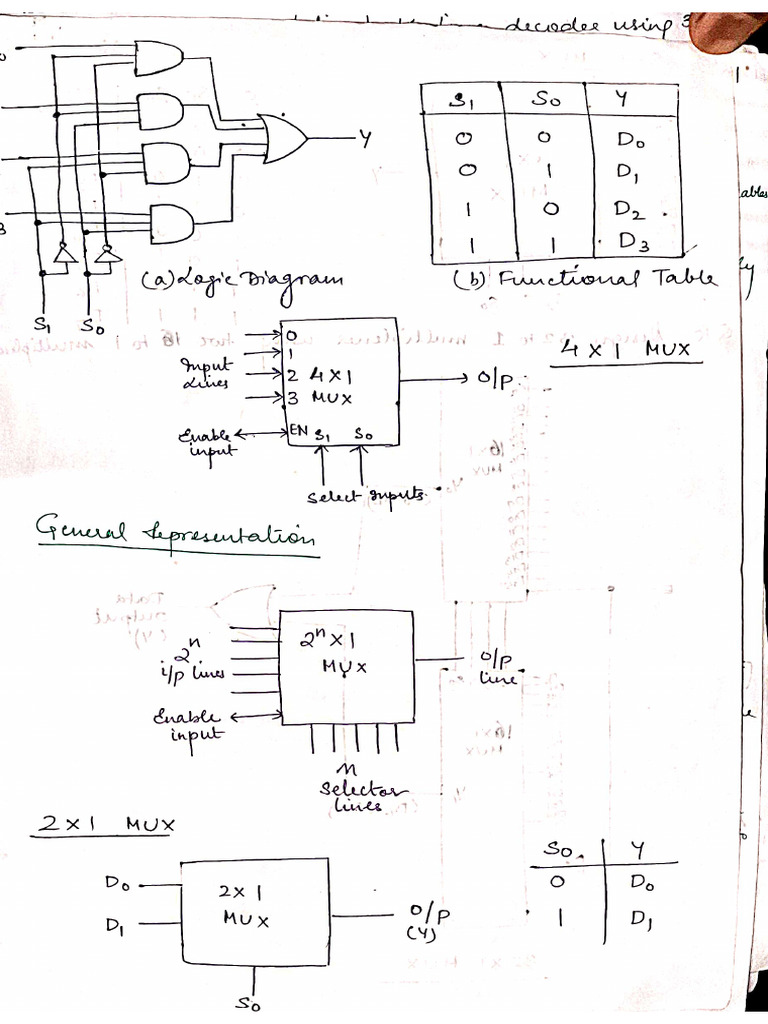 decoder using 3
S1 S0 Y
0 0 D0
0 1 D1
1 0 D2
1 1 D3
Y
3
S1 S0
(a) Logic Diagram
(b) Functional Table
4 X 1 MUX
Input
Lines
0
1
2 4X1
3 MUX
O/P
Enable
input
EN S1 S0
Select Inputs
General representation
2^n
i/p lines
2^n X 1
MUX
O/P
Line
Enable
input
n
Selector
Lines
2 X 1 MUX
D0
D1
2X1
MUX
O/P
(Y)
S0
S0 Y
0 D0
1 D1